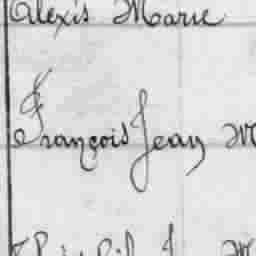 Alexis Marie
François Jean M